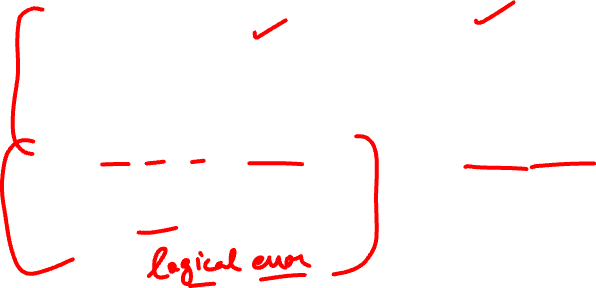 logical error